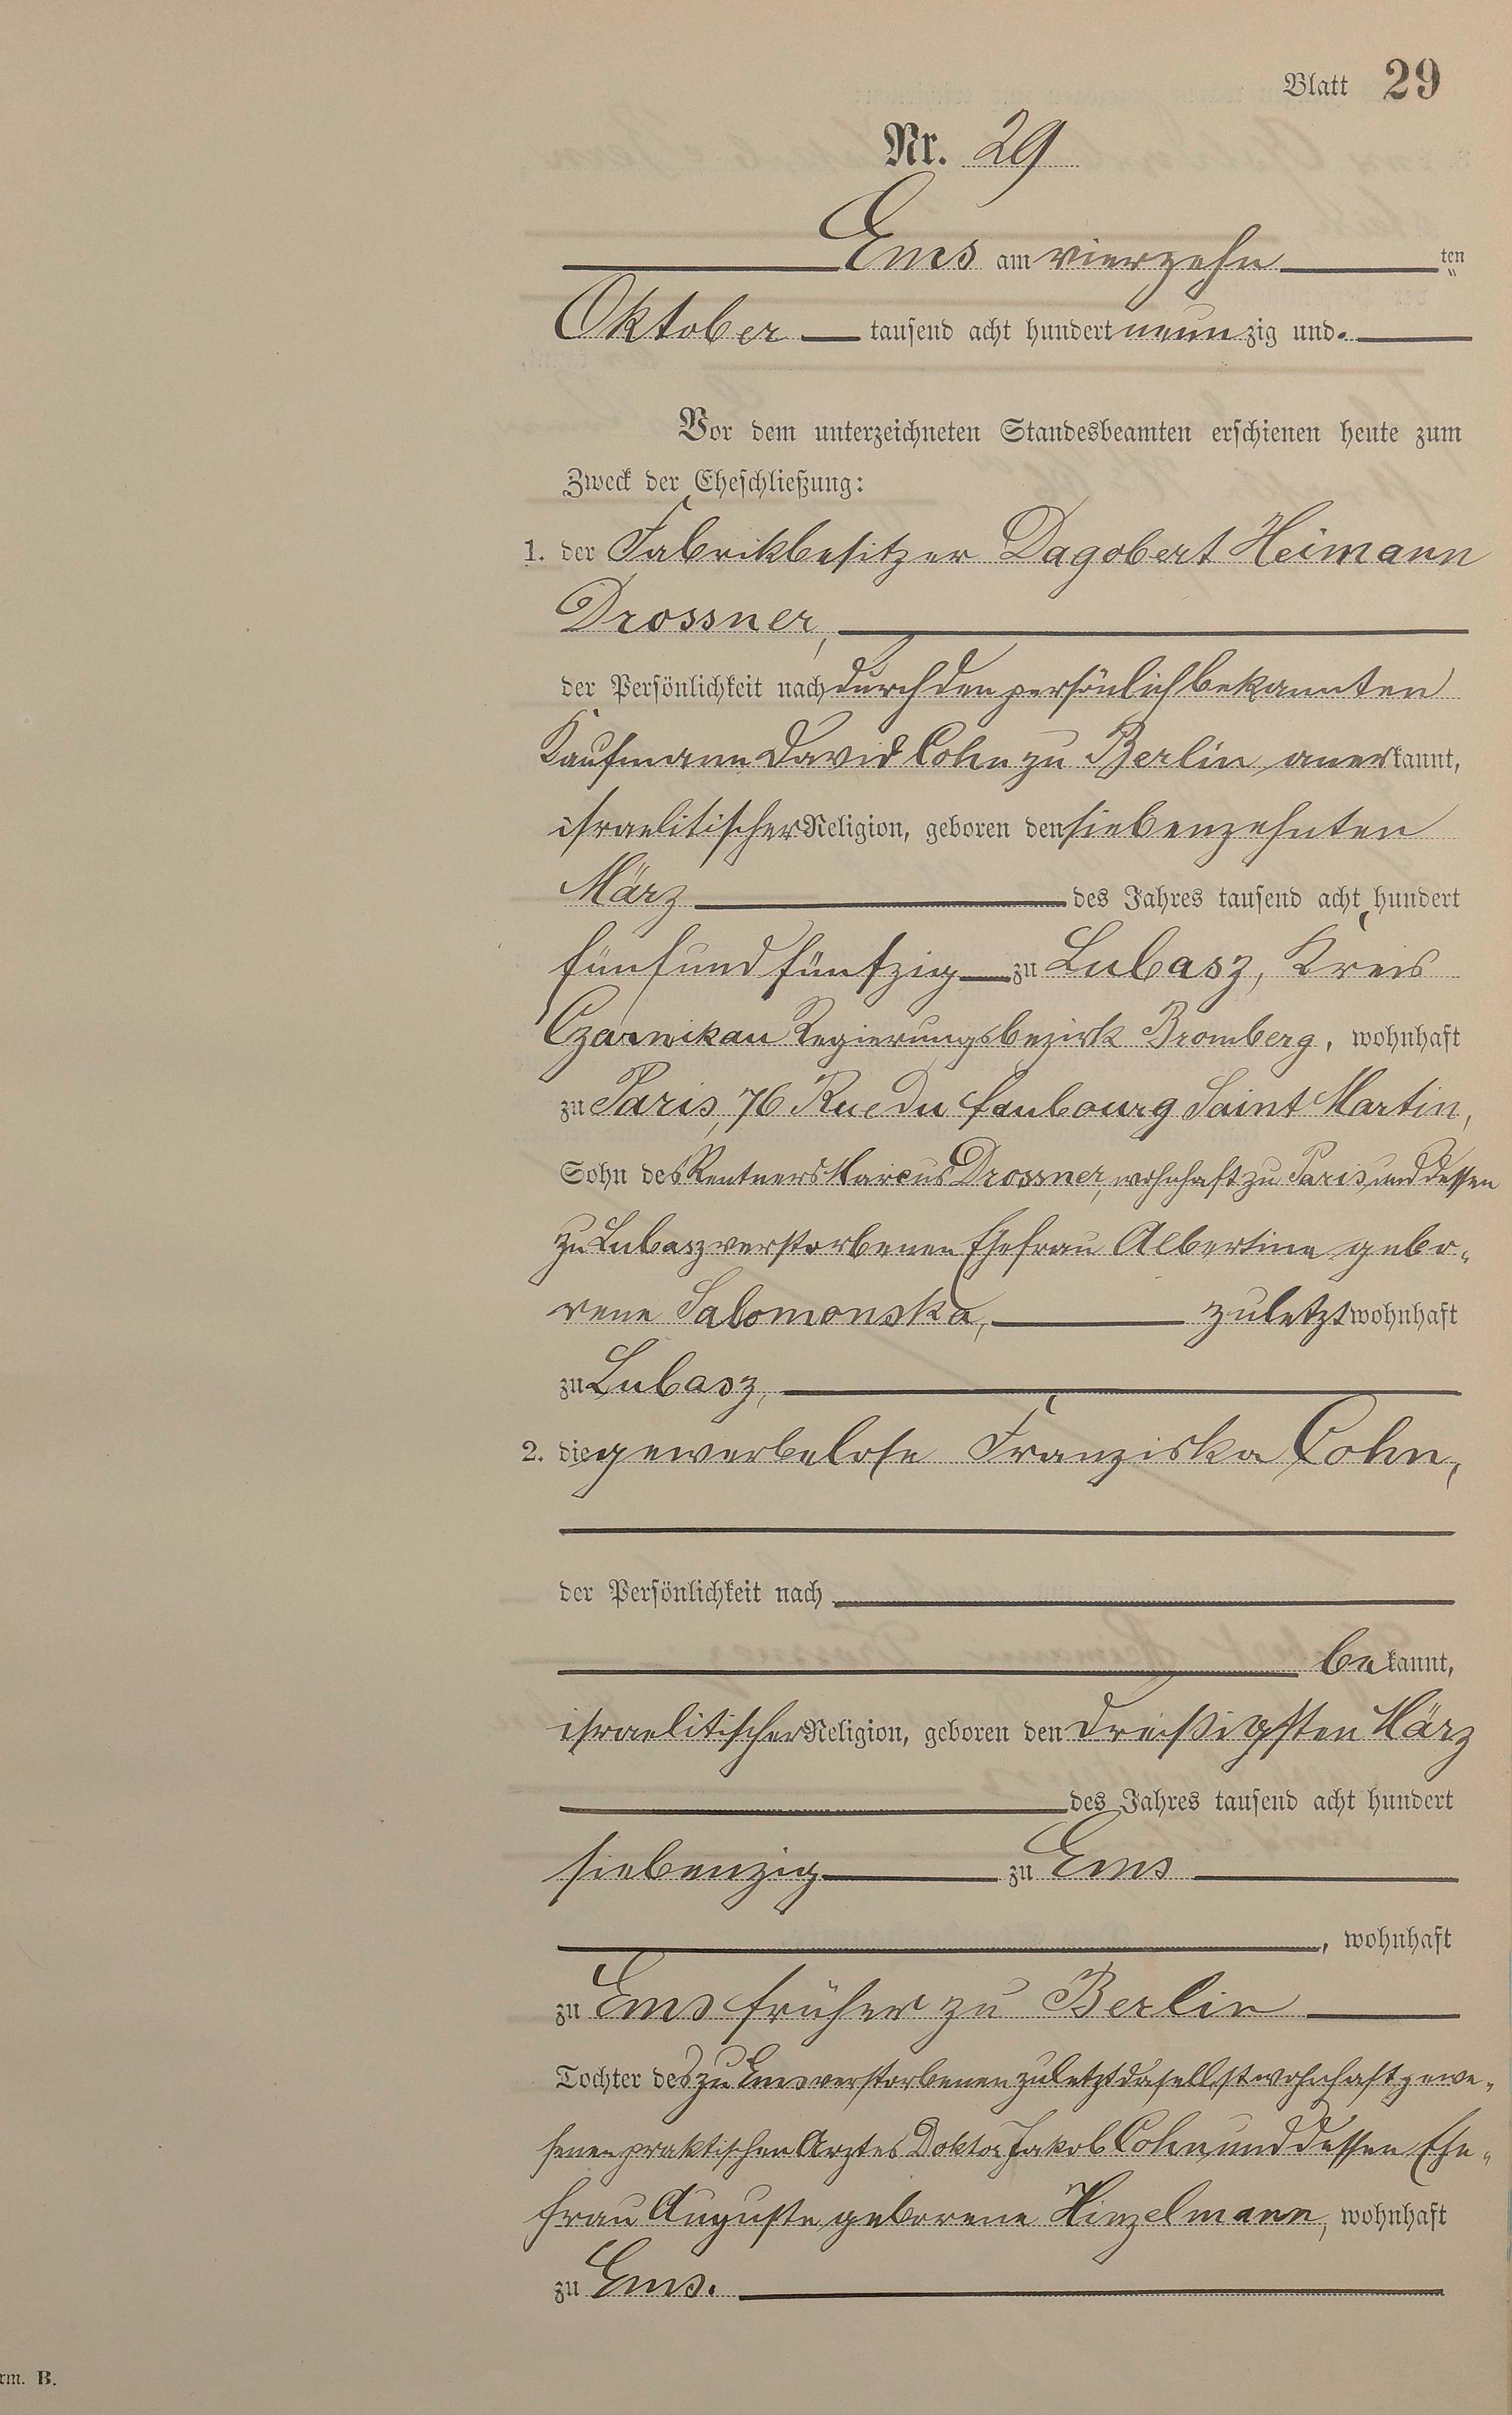 Blatt 29
Nr. 29
Ems am vierzehn ten
Oktober tausend acht hundert neunzig und
Vor dem unterzeichneten Standesbeamten erschienen heute zum
Zweck der Eheschließung:
1. der Fabrikbesitzer Dagobert Heimann
Drossner,
der Persönlichkeit nach durch den persönlich bekannten
Kaufmann David Cohn zu Berlin anerkannt,
israelitischer Religion, geboren den siebenzehnten
März des Jahres tausend acht hundert
fünfundfünfzig zu Lubasz, Kreis
Czarnikau Regierungsbezirk Bromberg, wohnhaft
zu Paris, 76 Rue du faubourg Saint Martin,
Sohn des Rentners Marcus Drossner, wohnhaft zu Paris und dessen
zu Lubasz verstorbenen Ehefrau Albertine gebo-
rene Salomonska, zuletzt wohnhaft
zu Lubasz,
2. die gewerbelose Franziska Cohn,
der Persönlichkeit nach
bekannt,
israelitischer Religion, geboren den dreißigsten März
des Jahres tausend acht hundert
siebenzig zu Ems
, wohnhaft
zu Ems früher zu Berlin
Tochter des zu Ems verstorbenen zuletzt daselbst wohnhaft gewe-
senen praktischen Arztes Doktor Jakob Cohn und dessen Ehe-
frau Auguste geborene Hinzelmann, wohnhaft
zu Ems.
rm. B.